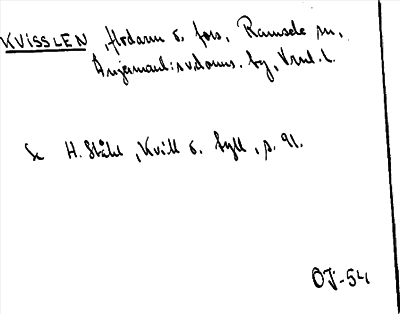 KVISSLEN, flodarm o. fors, Ramsele sn,
Ångermanl:s v. doms. by, Vrnl. l.
Se H. Ståhl, Kvill o. tyll, s. 91.
OJ-54